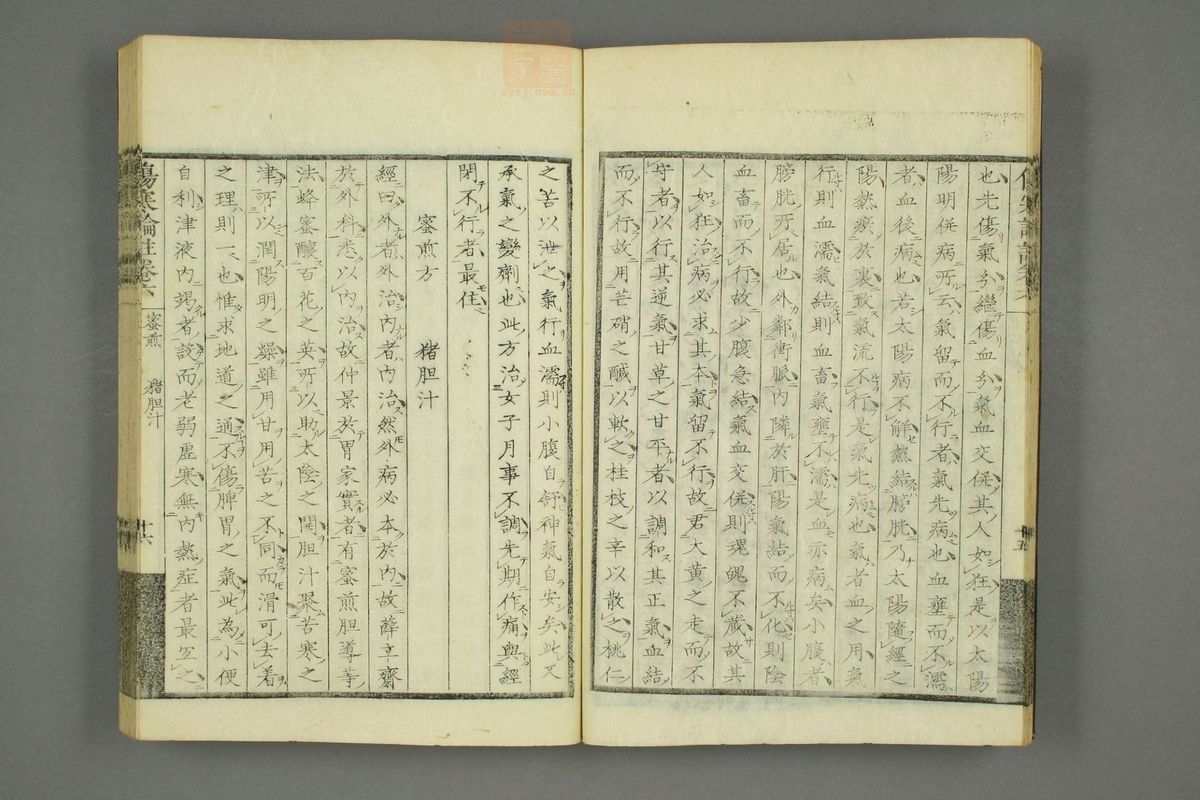 也先傷氣分繼傷血分氣血交併其人如狂是以太陽
陽明併病所云氣留而不行者氣先病也血壅而不濡
者血後病也若太陽病不解熱結膀胱乃太陽隨經之
陽熱瘀於裏致氣流不行是氣先病也氣者血之用氣
行則血濡氣結則血畜氣壅不濡是血亦病矣小腹者
膀胱所居也外鄰衝脈內隣於肝陽氣結而不化則陰
血畜而不行故少腹急結氣血交併則魂魄不藏故其
人如狂治病必求其本氣留不行故君大黃之走而不
守者以行其逆氣甘草之甘平者以調和其正氣血結
而不行故用芒硝之鹹以軟之桂枝之辛以散之桃仁
之苦以泄之氣行血濡則小腹自舒神氣自安矣此又
承氣之變劑也此方治女子月事不調先期作痛與經
閉不行者最佳
蜜煎方　猪胆汁
經曰外者外治內者內治然外病必本於內故薛立齋
於外科悉以內治故仲景於胃家實者有蜜煎胆導等
法蜂蜜釀百花之英所以助太陰之開胆汁聚苦寒之
津所以潤陽明之燥雖用甘用苦之不同而滑可去着
之理則一也惟求地道之通不傷脾胃之氣此為小便
自利津液內竭者設而老弱虛寒無內熱症者最宜之
傷寒論註卷六
蜜煎　猪胆汁
十六